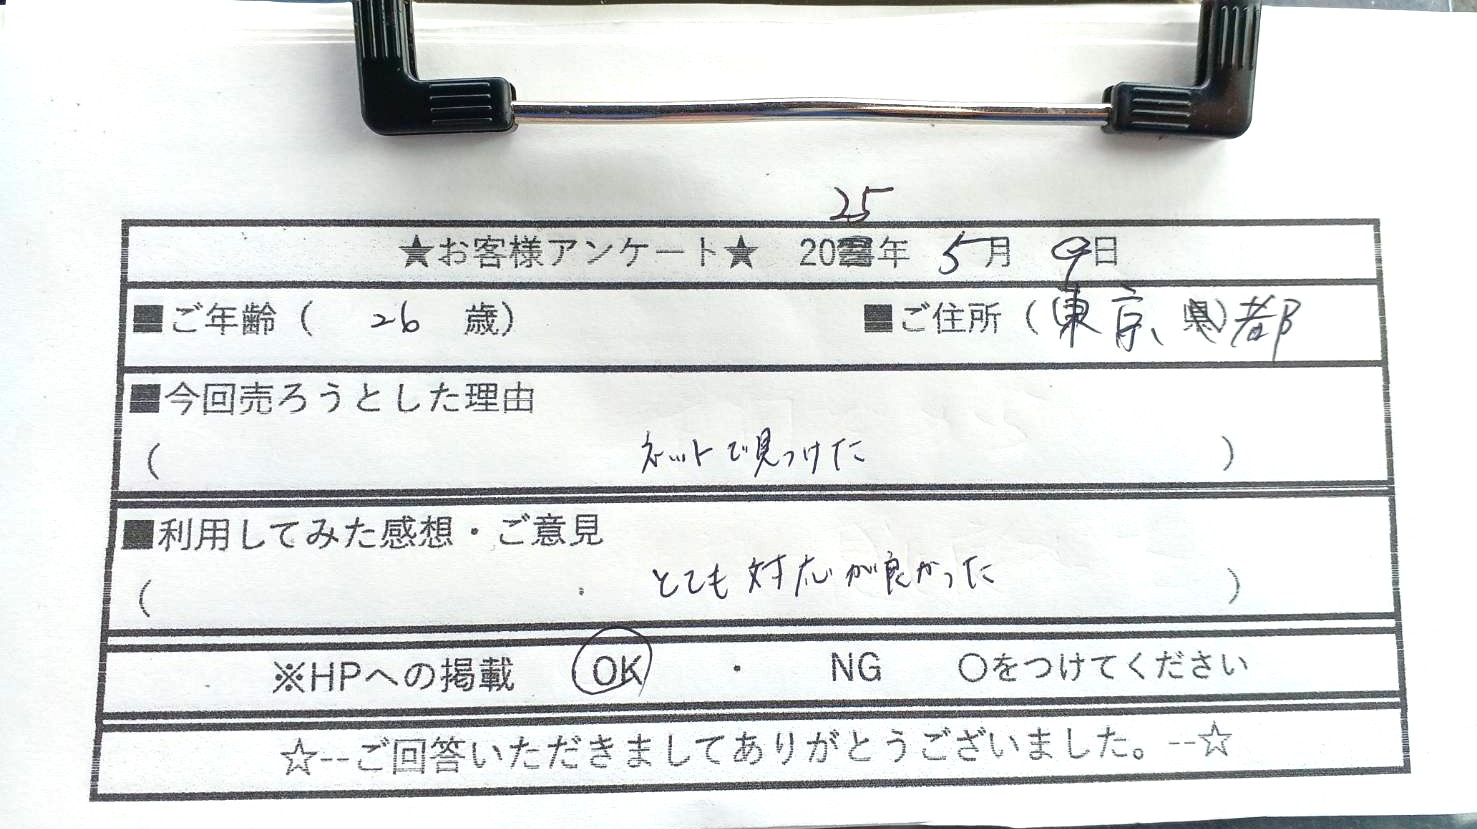 25
★お客様アンケート★ 20年 5月 9日
■ご年齢( 26 歳) ■ご住所(東京、県)都
■今回売ろうとした理由
( ネットで見つけた )
■利用してみた感想・ご意見
( とても対応が良かった )
※HPへの掲載 OK ・ NG 〇をつけてください
☆--ご回答いただきましてありがとうございました。--☆